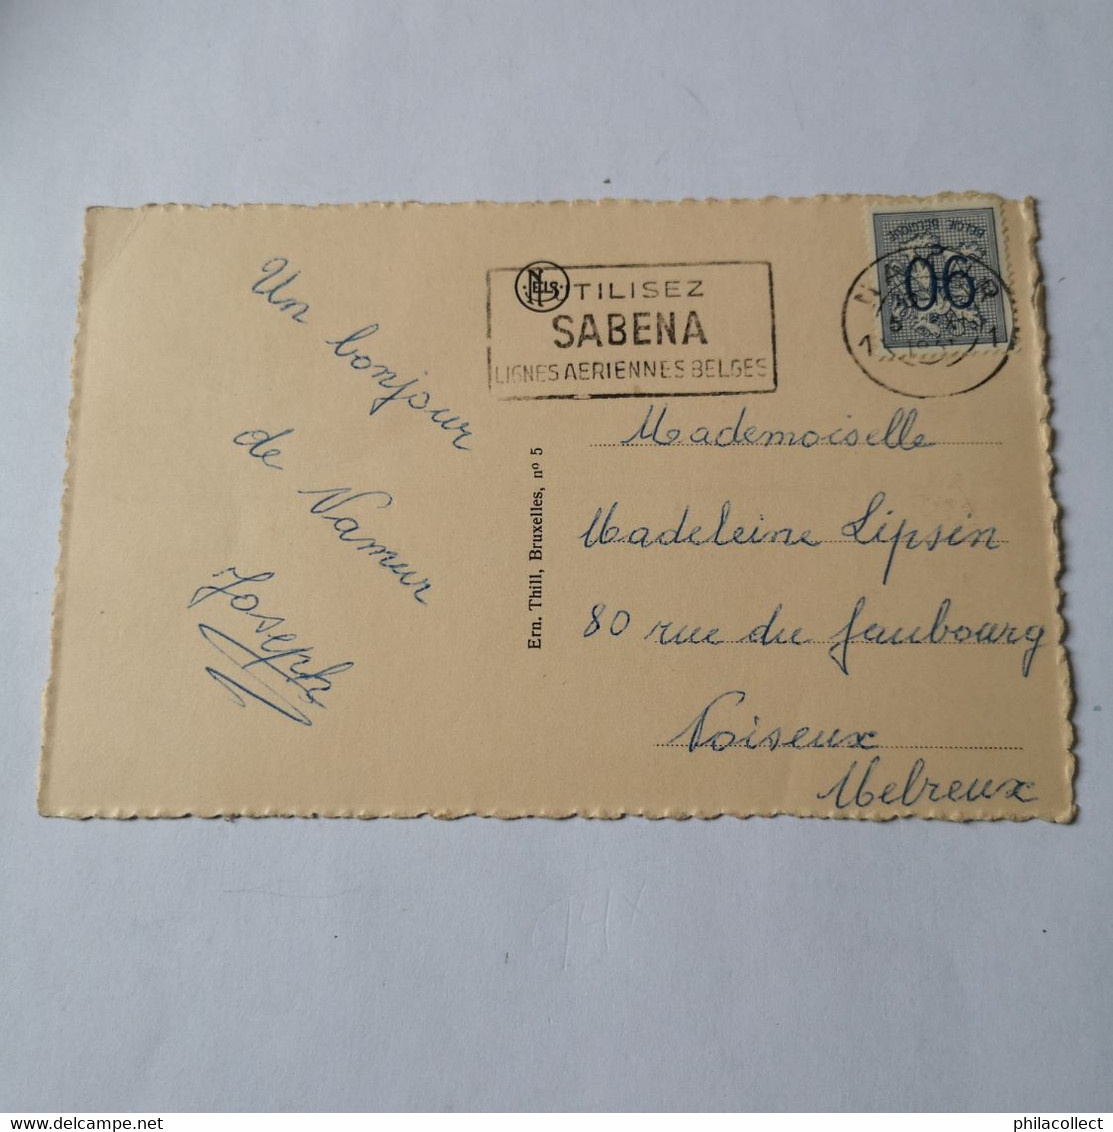 Un bonjour
de Namur
Joseph
NELS
UTILISEZ
SABENA
LIGNES AERIENNES BELGES
BELGIE BELGIQUE
90
NAMUR
Ern. Thill, Bruxelles, nº 5
Mademoiselle
Madeleine Lipsin
80 rue du faubourg
Noiseux
Melreux
14x
philacollect